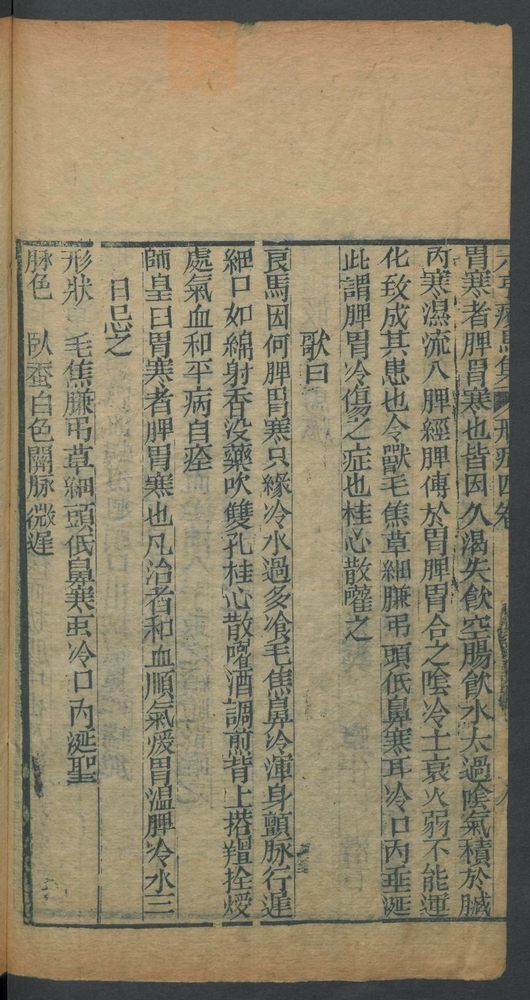 元亨療馬集 形症四卷 八
胃寒者脾胃寒也皆因久渴失飲空腸飲水太過陰氣積於臟
內寒濕流入脾經脾傳於胃脾胃合之陰冷土衰火弱不能運
化致成其患也令獸毛焦草細膁吊頭低鼻寒耳冷口內垂涎
此謂脾胃冷傷之症也桂心散嚾之
歌曰
良馬因何脾胃寒只緣冷水過多飡毛焦鼻冷渾身顫脉行遲
細口如綿射香没藥吹雙孔桂心散嚾酒調煎背上搭氊拴煖
處氣血和平病自痊
師皇曰胃寒者脾胃寒也凡治者和血順氣煖胃溫脾冷水三
日忌之
形狀 毛焦膁吊草細頭低鼻寒耳冷口內涎
脉色 臥蚕白色關脉微遲